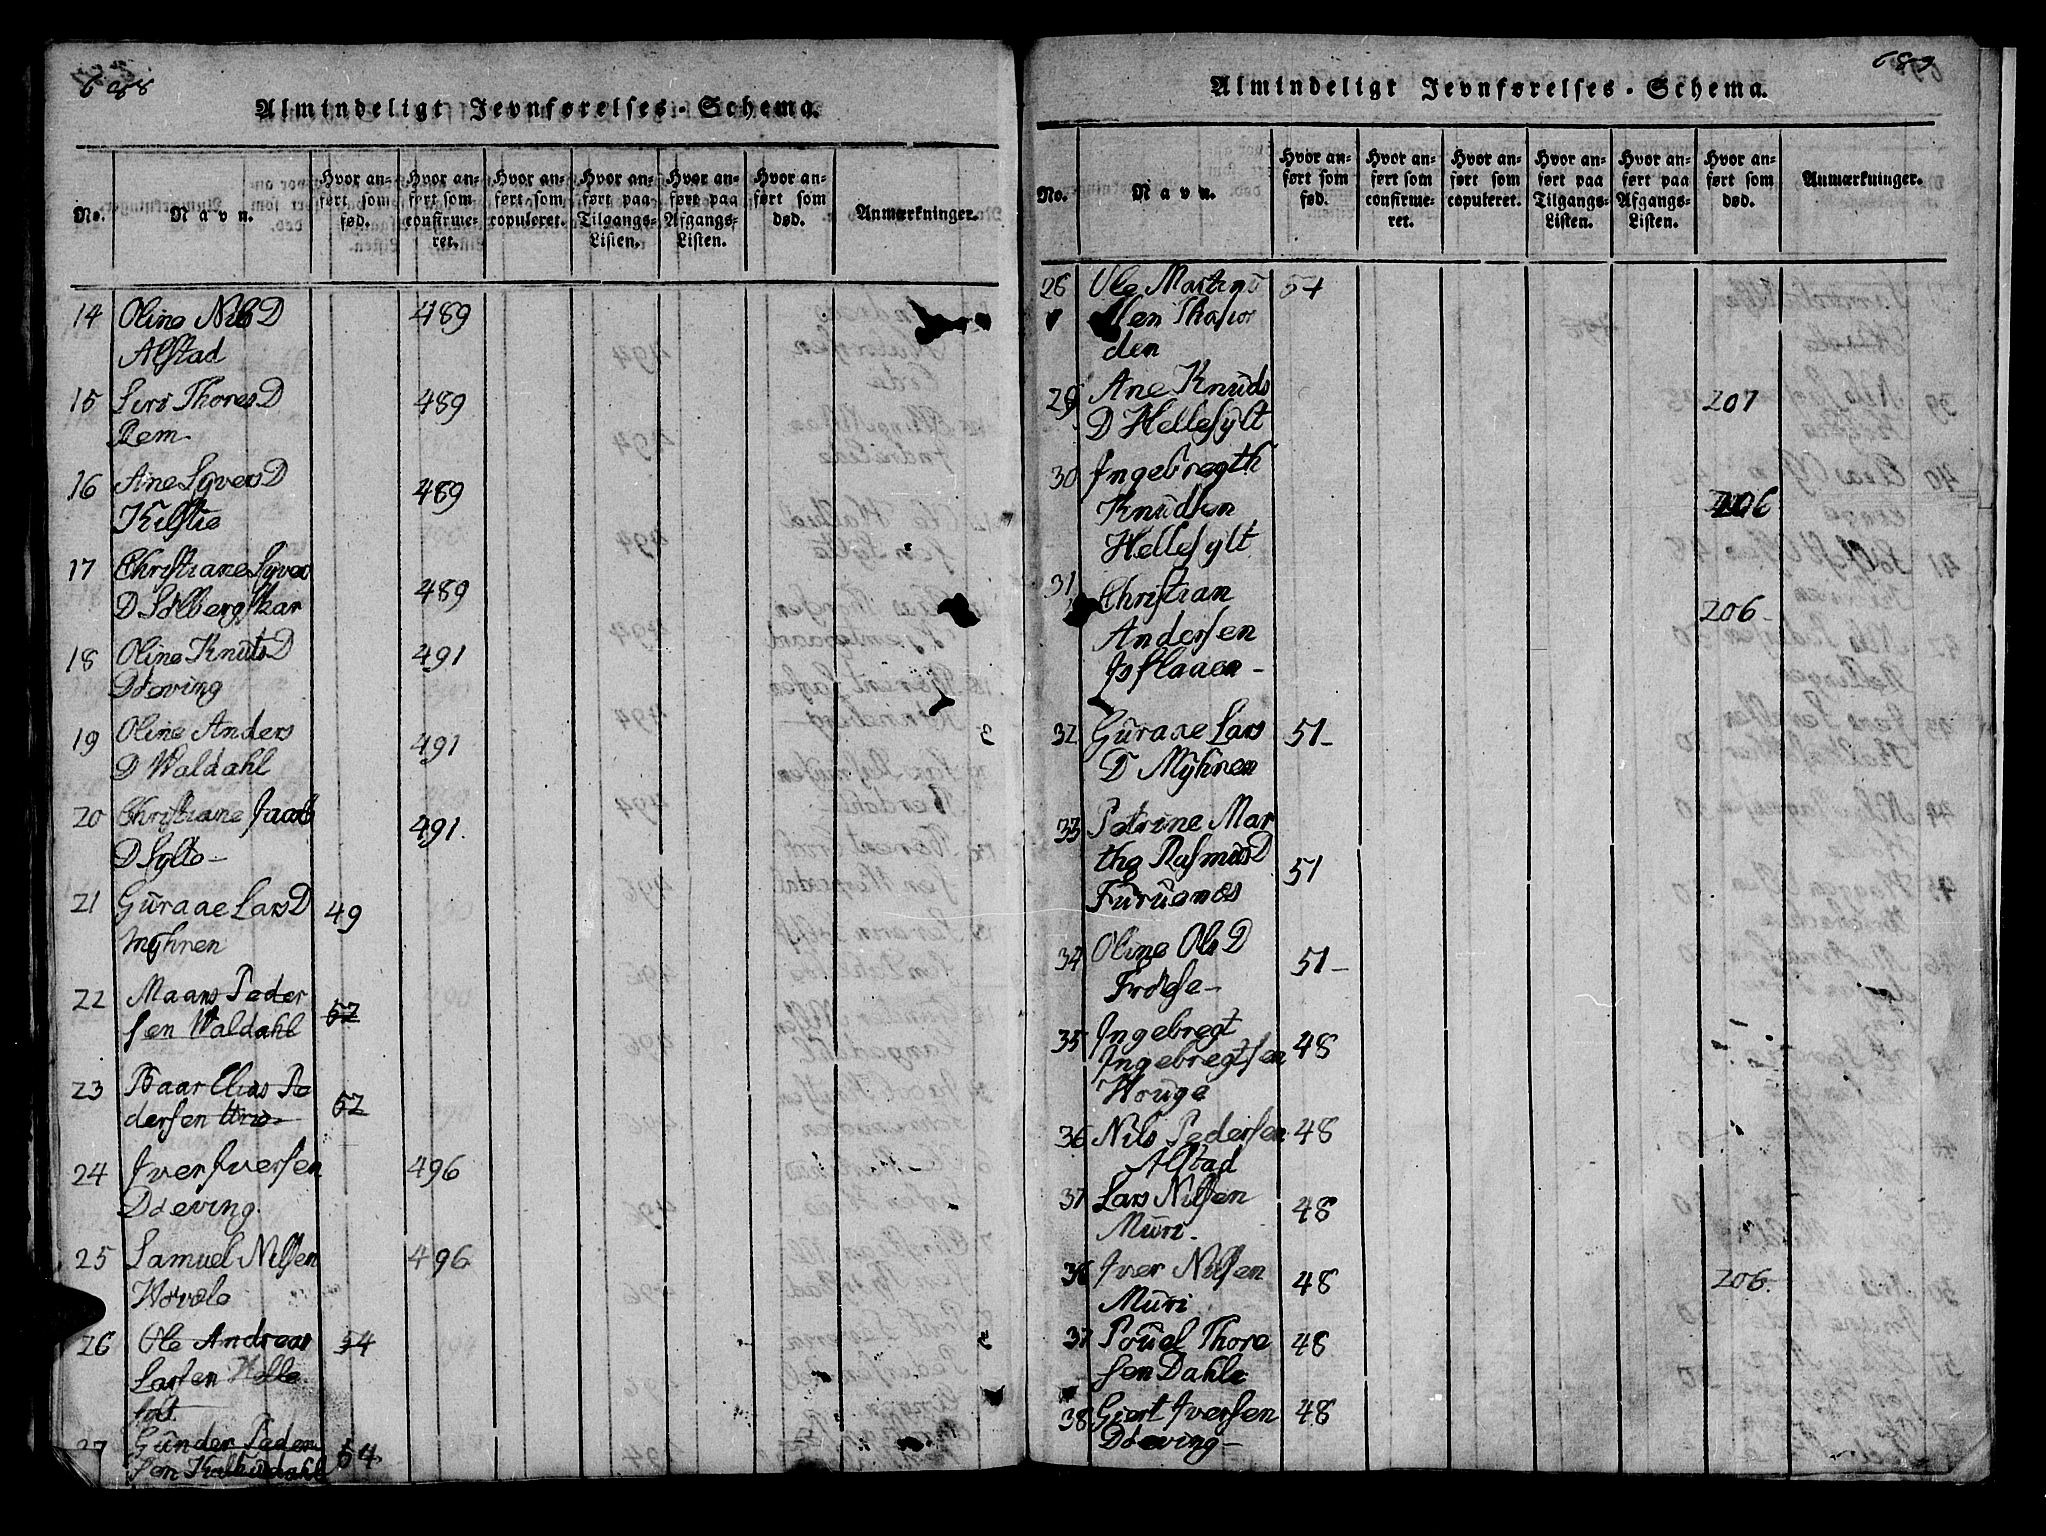 688
Almindeligt Jevnførelses-Schema.
No.
Navn.
Hvor anført som fød.
Hvor anført som confirmeret.
Hvor anført som copuleret.
Hvor anført paa Tilgangs-Listen.
Hvor anført paa Afgangs-Listen.
Hvor anført som død.
Anmærkninger.
14 Oline Nils D 489
Alstad
15 Thores D 489
Rem
16 Ane Syvers D 489
Kilstie
17 Christiane Syvers
D Sölbergskar 489
18 Oline Knuts D 491
Döeving
19 Oline Anders 491
D Waldahl
20 Christiane Jacobs 491.
D Sylte-
21 Gūraae Lars D 49
Mÿhren
22 Maans Peder
sen Waldahl 52
23 Baar Elias Pe 52
dersen
24 Jver Jversen 496
Döeving.
25 Samuel Nilsen 496
26 Ole Andreas 54
Larsen Helle
27 Gūnder Peder 54
sen
689
Almindeligt Jevnførelses-Schema.
No.
Navn.
Hvor anført som fød.
Hvor anført som confirmeret.
Hvor anført som copuleret.
Hvor anført paa Tilgangs-Listen.
Hvor anført paa Afgangs-Listen.
Hvor anført som død.
Anmærkninger.
28 Ole Martinū 54
sen
den
29 Ane Knūds 207
D Hellesylt
30 Jngebregth
Knūdsen 206
Hellesylt
31 Christian 206-
Andersen
32 Gūraae Lars 51-
D Mÿhren
33 Petrine Mar
the Rasmūs D 51
Fūrūenæs
34 Oline Ols D 51-
Fröise-
35 Jngebregt 48
Jngebregtsen
Houge
36 Nils Pedersen 48
Alstad
37 Lars Nilsen 48
Mūri.
36 Jver Nilsen 48 206
Mūri
37 Poūel Thore 48
sen Dahle
38 Giert Jversen 48
Döeving-